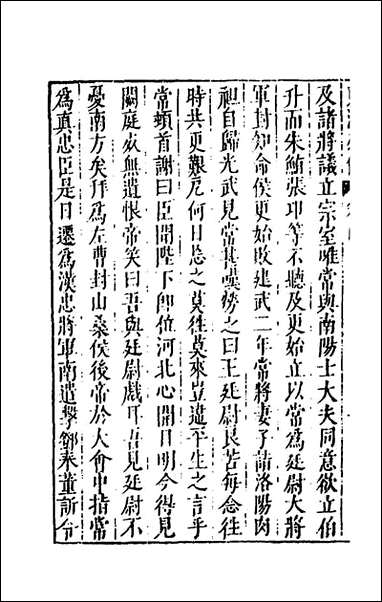 及諸將議立宗室唯常與南陽士大夫同意欲立伯
升而朱鮪張卬等不聽及更始立以常爲廷尉大將
軍封知命侯更始敗建武二年常將妻子詣洛陽肉
袒自歸光武見常甚歡勞之曰王廷尉良苦每念往
時共更艱厄何日忘之莫往莫來豈違平生之言乎
常頓首謝曰臣聞陛下卽位河北心開目明今得見
闕庭死無遺恨帝笑曰吾與廷尉戲耳吾見廷尉不
憂南方矣拜爲左曹封山桑侯後帝於大會中指常
爲真忠臣是日遷爲漢忠將軍南遣擊鄧奉董訢令